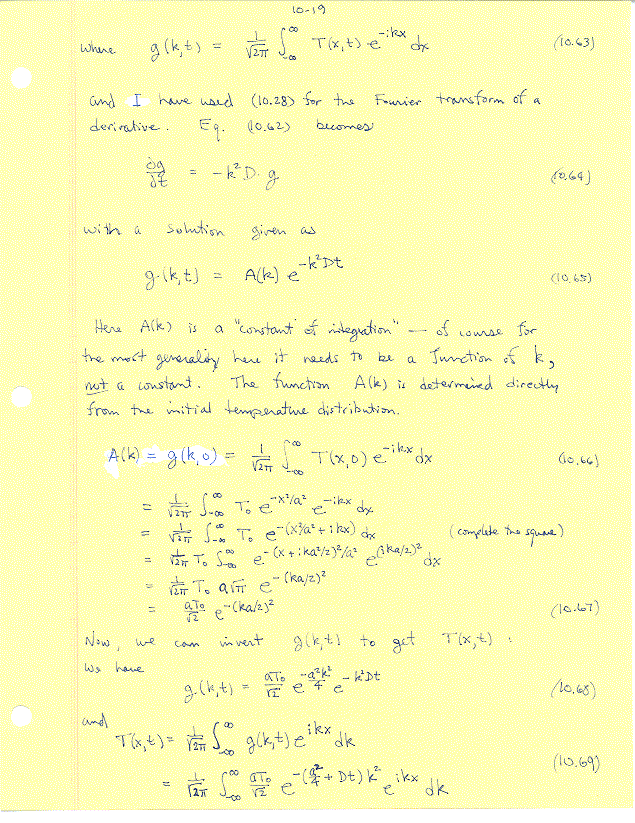 10-19
where g(k,t) = 1/√2π ∫_{-∞}^{∞} T(x,t) e^{-ikx} dx (10.63)
and I have used (10.28) for the Fourier transform of a
derivative. Eq. (10.62) becomes
∂g/∂t = -k²D·g (10.64)
with a solution given as
g(k,t) = A(k) e^{-k²Dt} (10.65)
Here A(k) is a "constant of integration" — of course for
the most generality here it needs to be a function of k,
not a constant. The function A(k) is determined directly
from the initial temperature distribution.
A(k) = g(k,0) = 1/√2π ∫_{-∞}^{∞} T(x,0) e^{-ikx} dx (10.66)
= 1/√2π ∫_{-∞}^{∞} T₀ e^{-x²/a²} e^{-ikx} dx
= 1/√2π ∫_{-∞}^{∞} T₀ e^{-(x²/a² + ikx)} dx (complete the square)
= 1/√2π T₀ ∫_{-∞}^{∞} e^{-(x + ika²/2)²/a²} e^{(ika/2)²} dx
= 1/√2π T₀ a√π e^{-(ka/2)²}
= aT₀/√2 e^{-(ka/2)²} (10.67)
Now, we can invert g(k,t) to get T(x,t):
We have
g(k,t) = aT₀/√2 e^{-a²k²/4} e^{-k²Dt} (10.68)
and
T(x,t) = 1/√2π ∫_{-∞}^{∞} g(k,t) e^{ikx} dk
= 1/√2π ∫_{-∞}^{∞} aT₀/√2 e^{-(a²/4 + Dt)k²} e^{ikx} dk (10.69)